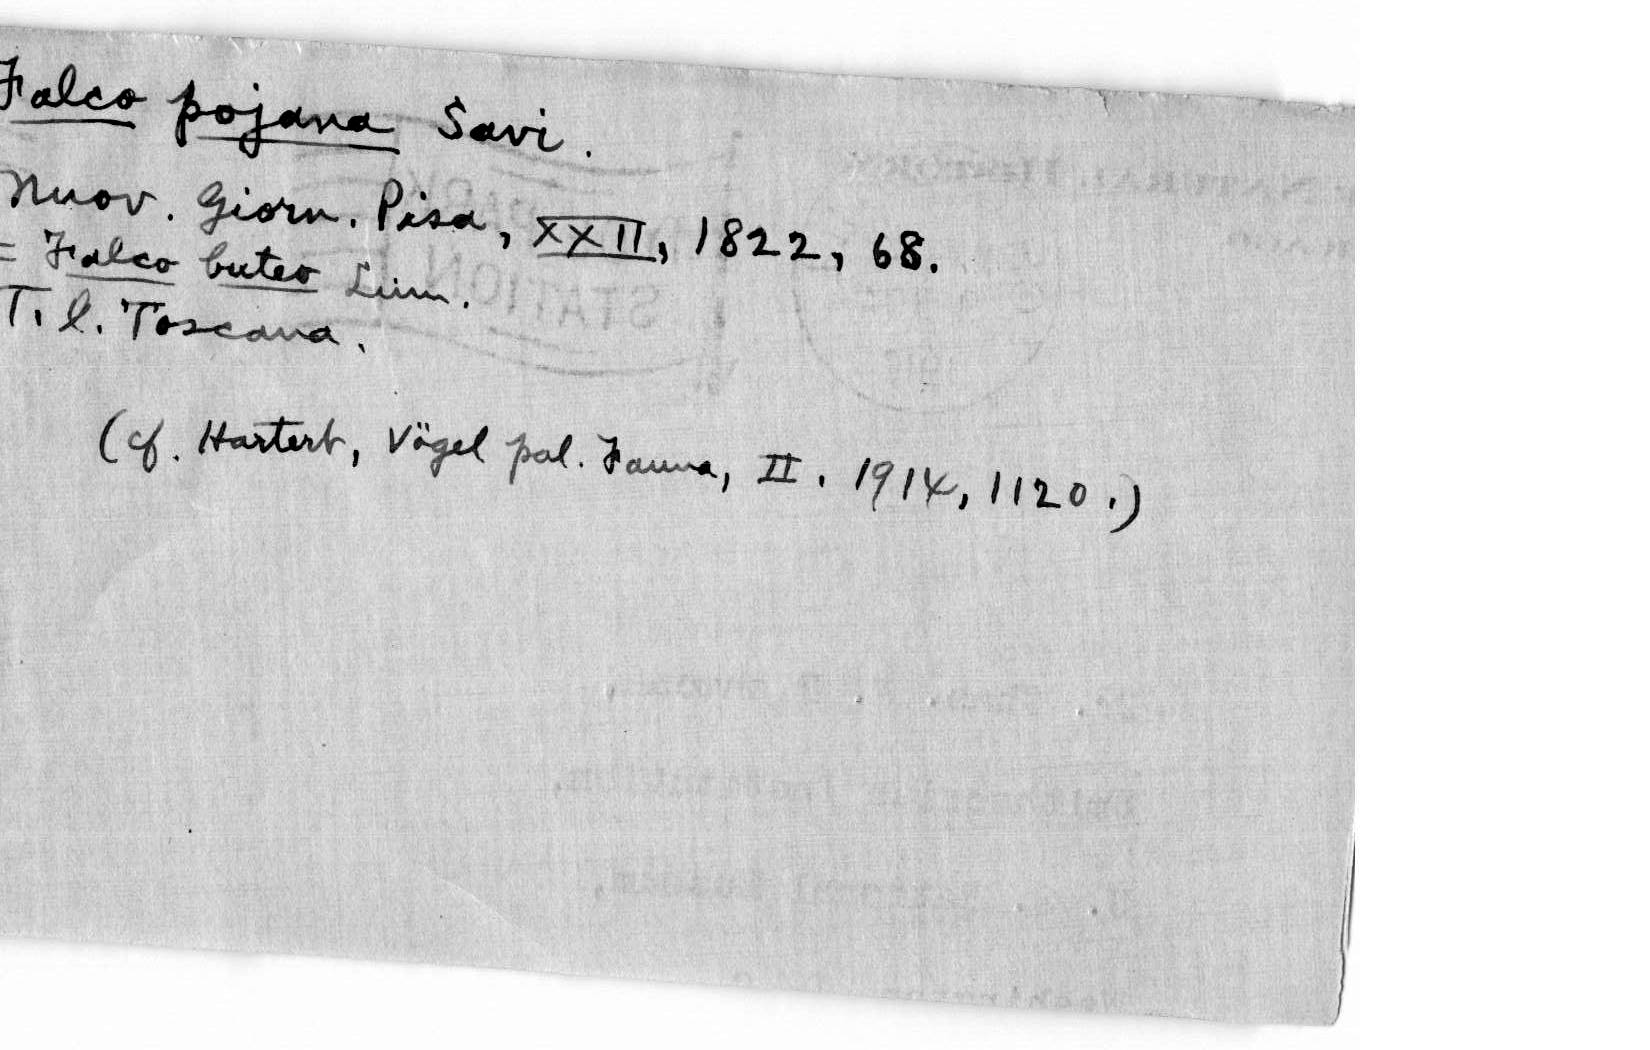 Falco pojana Savi.
Nuov. Giorn. Pisa, XXII, 1822, 68.
= Falco buteo Linn.
T. l. Toscana.
(cf. Hartert, Vögel pal. Fauna, II. 1914, 1120.)
NATURAL HISTORY
PARK
STATION